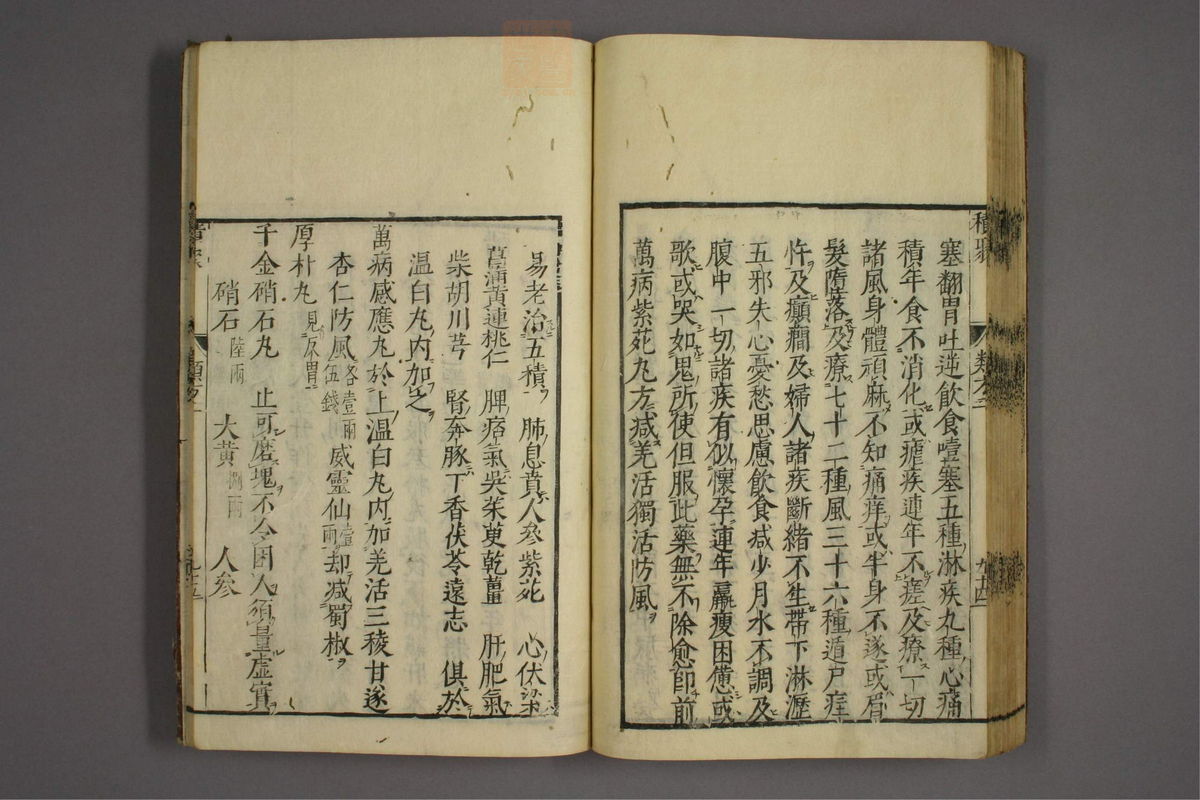 塞翻胃吐逆飲食噎塞五種淋疾九種心痛
積年食不消化或瘧疾連年不瘥及療一切
諸風身體頑麻不知痛痒或半身不遂或眉
髮墮落及療七十二種風三十六種遁尸疰
忤及癲癇及婦人諸疾斷緒不生帶下淋瀝
五邪失心憂愁思慮飲食减少月水不調及
腹中一切諸疾有似懷孕連年羸瘦困憊或
歌或哭如鬼所使但服此藥無不除愈即前
萬病紫菀丸方减羌活獨活防風
易老治五積 肺息賁人參紫菀 心伏梁
菖蒲黃連桃仁 脾痞氣吳茱萸乾薑 肝肥氣
柴胡川芎 腎奔豚丁香茯苓遠志 俱於
温白丸内加之
萬病感應丸於上温白丸内加羌活三稜甘遂
杏仁防風各壹兩伍錢威靈仙壹兩却减蜀椒
厚朴丸見反胃
千金硝石丸 止可磨塊不令困人須量虛實
硝石陸兩 大黃捌兩 人參